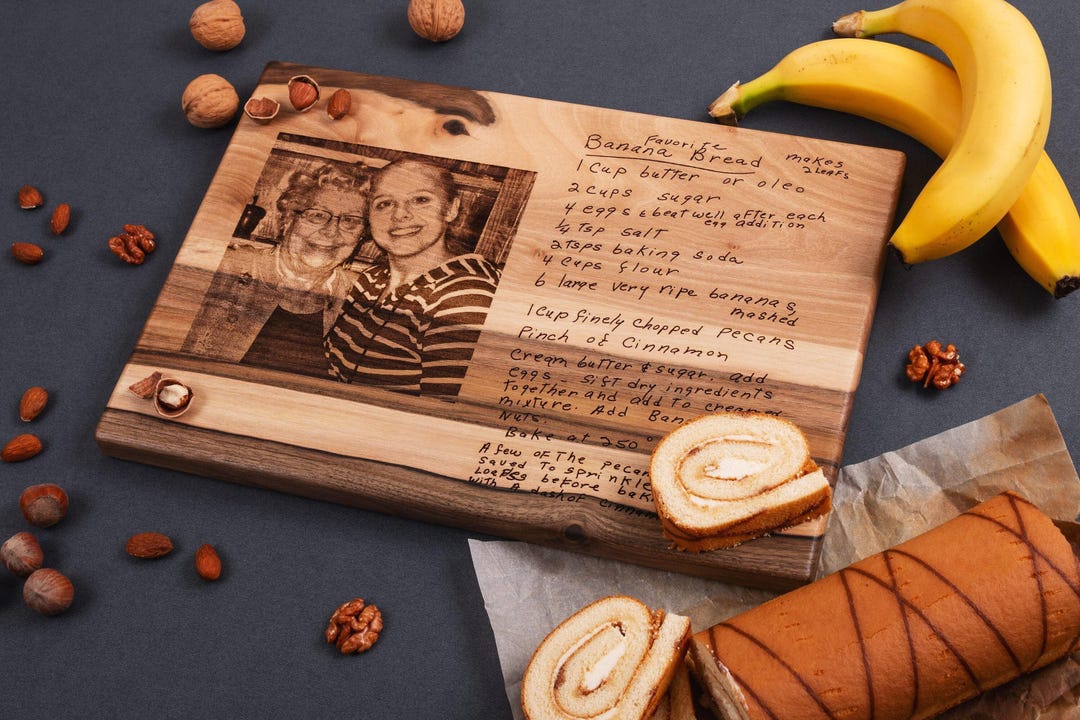 Favorite
Banana Bread makes
2 Loafs
1 Cup butter or oleo
2 cups sugar
4 eggs & beat well after each
egg addition
1/4 Tsp salt
2 Tsps baking soda
4 Cups flour
6 large very ripe bananas,
mashed
1 Cup finely chopped pecans
Pinch of Cinnamon
Cream butter & sugar. add
eggs - Sift dry ingredients
together and add to creamed
mixture. Add
Nuts.
Bake at 250°
A few of The
saved To sprinkle
before
with A dash of